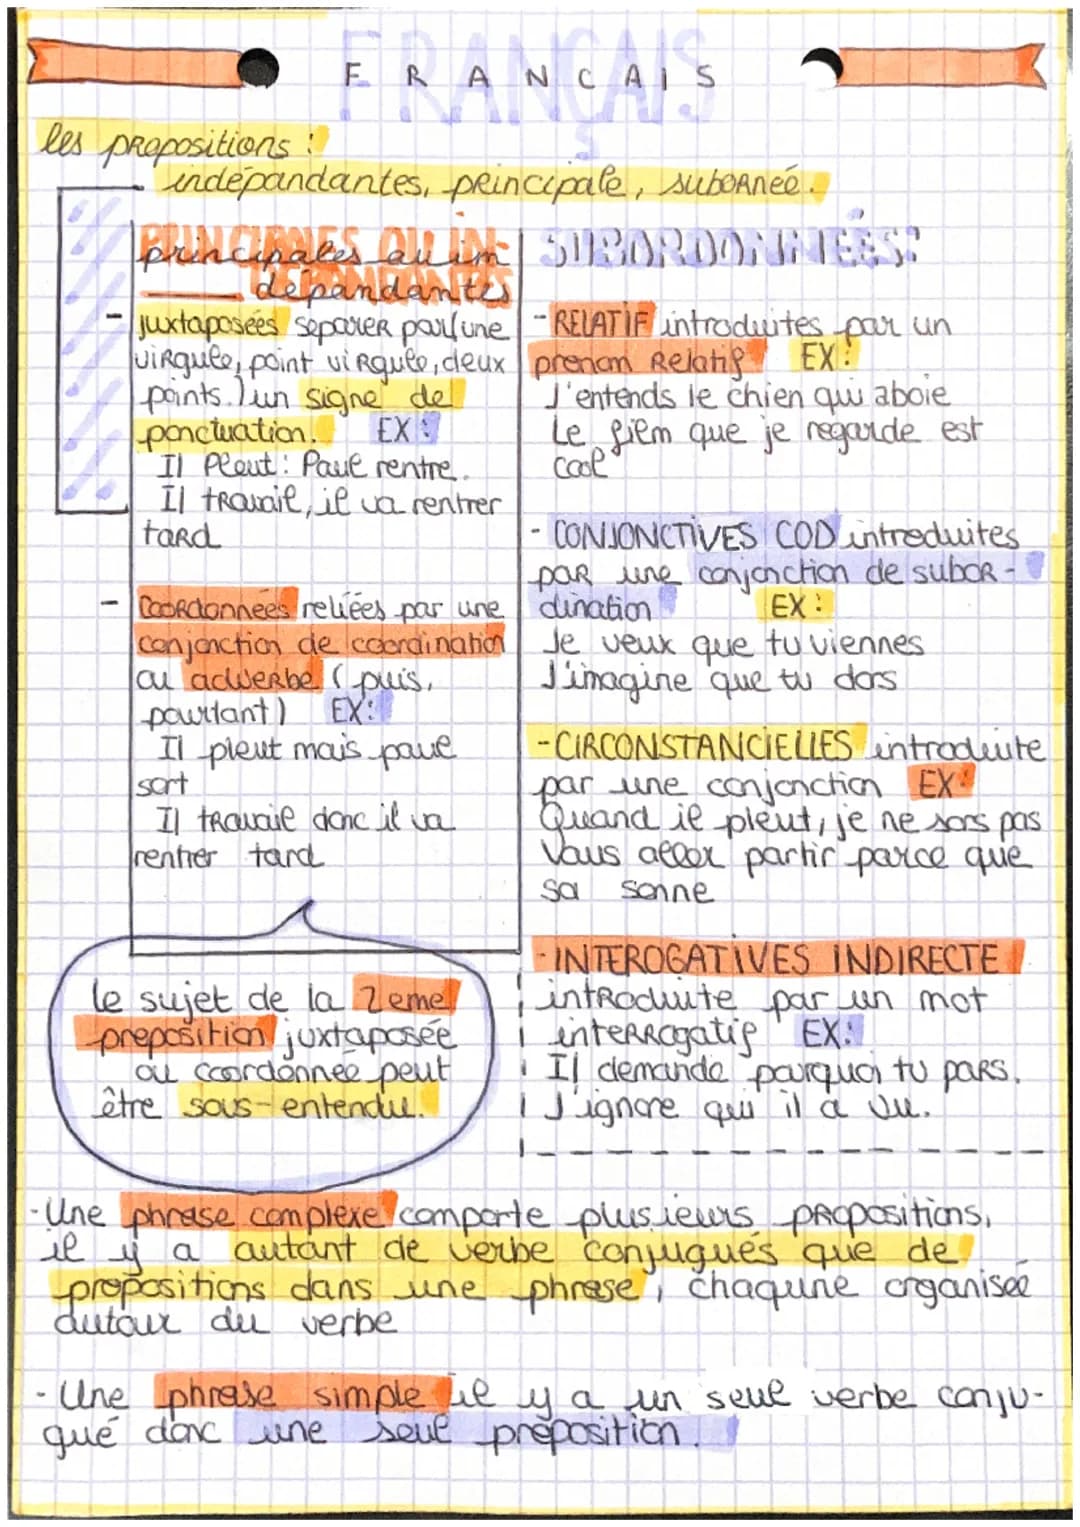 FRANÇAIS
FRANCAIS
les propositions :
indépandantes, principale, subornéé.
principales ou in
dépandantes
- juxtaposées séparer par (une
virgule, point virgule, deux
points.) un signe de
ponctuation. EX :
Il Pleut : Paul rentre.
Il travail, il va rentrer
tard
- Coordonnées reliées par une
conjonction de coordination
ou adverbe (puis,
pourtant) EX :
Il pleut mais paul
sort
Il travail donc il va
rentrer tard
le sujet de la 2eme
preposition juxtaposée
ou coordonnée peut
être sous-entendu.
SUBORDONNÉES:
- RELATIF introduites par un
pronom Relatif EX :
J'entends le chien qui aboie
Le film que je regarde est
cool
- CONJONCTIVES COD introduites
par une conjonction de subor-
dination EX :
Je veux que tu viennes
J'imagine que tu dors
- CIRCONSTANCIELLES introduite
par une conjonction EX :
Quand il pleut, je ne sors pas
Vous allez partir parce que
sa sonne
- INTEROGATIVES INDIRECTE
introduite par un mot
interrogatif EX :
Il demande pourquoi tu pars.
J'ignore qui il a vu.
- Une phrase complexe comporte plusieurs propositions,
il y a autant de verbe conjugués que de
propositions dans une phrase, chaqune organisée
autour du verbe
- Une phrase simple il y a un seul verbe conju-
gué donc une seul préposition.